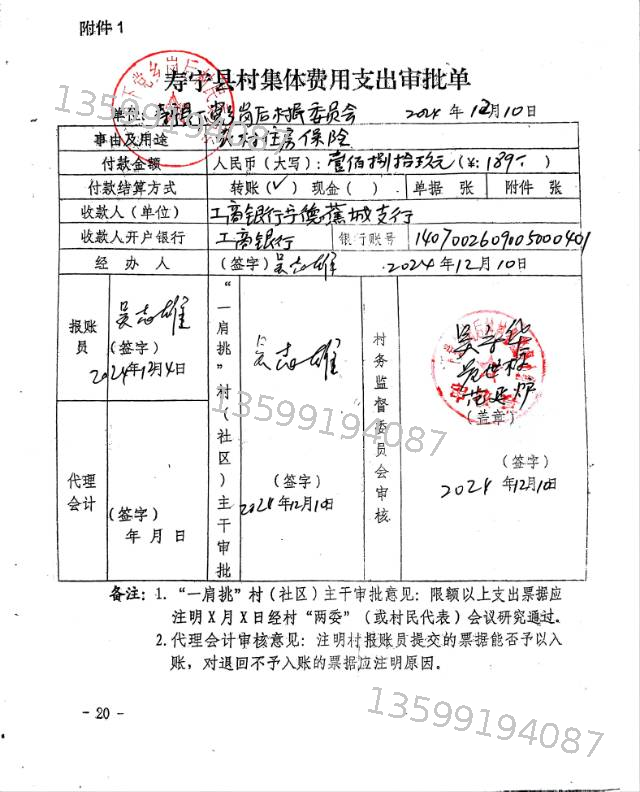 附件1
寿宁县村集体费用支出审批单
单位: 寿宁县下党乡岗后村村民委员会 2024年12月10日
事由及用途 农村住房保险
付款金额 人民币(大写): 壹佰捌拾玖元(¥: 189.-)
付款结算方式 转账(✓) 现金( ) 单据 张 附件 张
收款人(单位) 工商银行宁德蕉城支行
收款人开户银行 工商银行 银行账号 1407002609005000401
经办人 (签字)吴志雄 2024年12月10日
报账员 吴志雄 (签字) 2024年12月4日
“一肩挑”村(社区)主干审批 吴志雄 (签字) 2024年12月10日
村务监督委员会审核 (盖章) (签字) 2024年12月10日
代理会计 (签字) 年 月 日
备注: 1. “一肩挑”村(社区)主干审批意见: 限额以上支出票据应
注明X月X日经村“两委”(或村民代表)会议研究通过。
2. 代理会计审核意见: 注明村报账员提交的票据能否予以入
账, 对退回不予入账的票据应注明原因。
- 20 -
13599194087
13599194087
13599194087